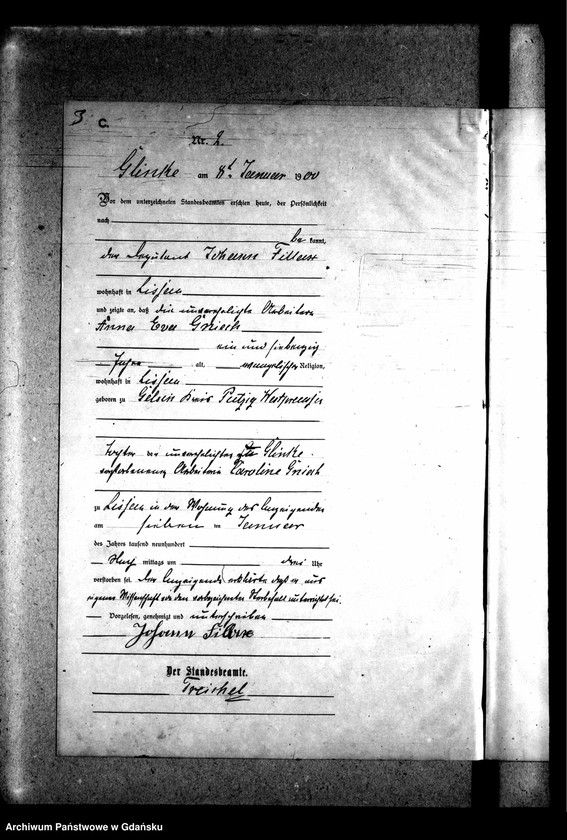 3
C.
Nr. 2.
Glinke am 8t. Januar 1900
Vor dem unterzeichneten Standesbeamten erschien heute, der Persönlichkeit
nach
be kannt,
der Deputant Johann
wohnhaft in Lissau
und zeigte an, daß die unverehelichte Arbeiterin
Anna Eva Gniech
ein und siebenzig
Jahre alt, evangelischer Religion,
wohnhaft in Lissau
geboren zu Kreis Putzig Westpreußen
Tochter der unverehelichten zu Glinke
verstorbenen Arbeiterin Caroline Gniech
zu Lissau in der Wohnung des Anzeigenden
am sieben ten Januar
des Jahres tausend neunhundert
Nach mittags um drei Uhr
verstorben sei. Der Anzeigende erklärte daß er aus
eigener Wissenschaft von dem vorbezeichneten Sterbefall unterrichtet sei.
Vorgelesen, genehmigt und unterschrieben
Johann
Der Standesbeamte.
Treichel
Archiwum Państwowe w Gdańsku